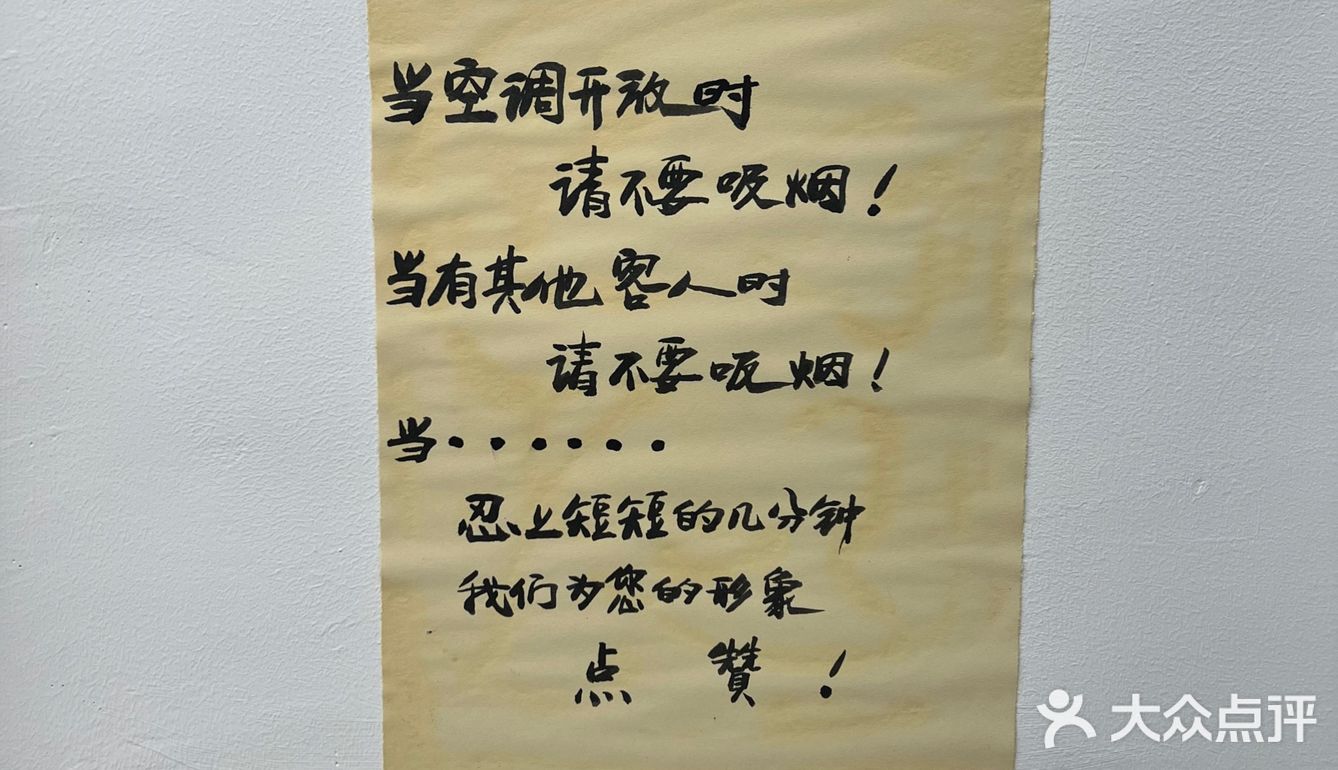 当空调开放时
请不要吸烟！
当有其他客人时
请不要吸烟！
当······
忍上短短的几分钟
我们为您的形象
点 赞 ！
大众点评